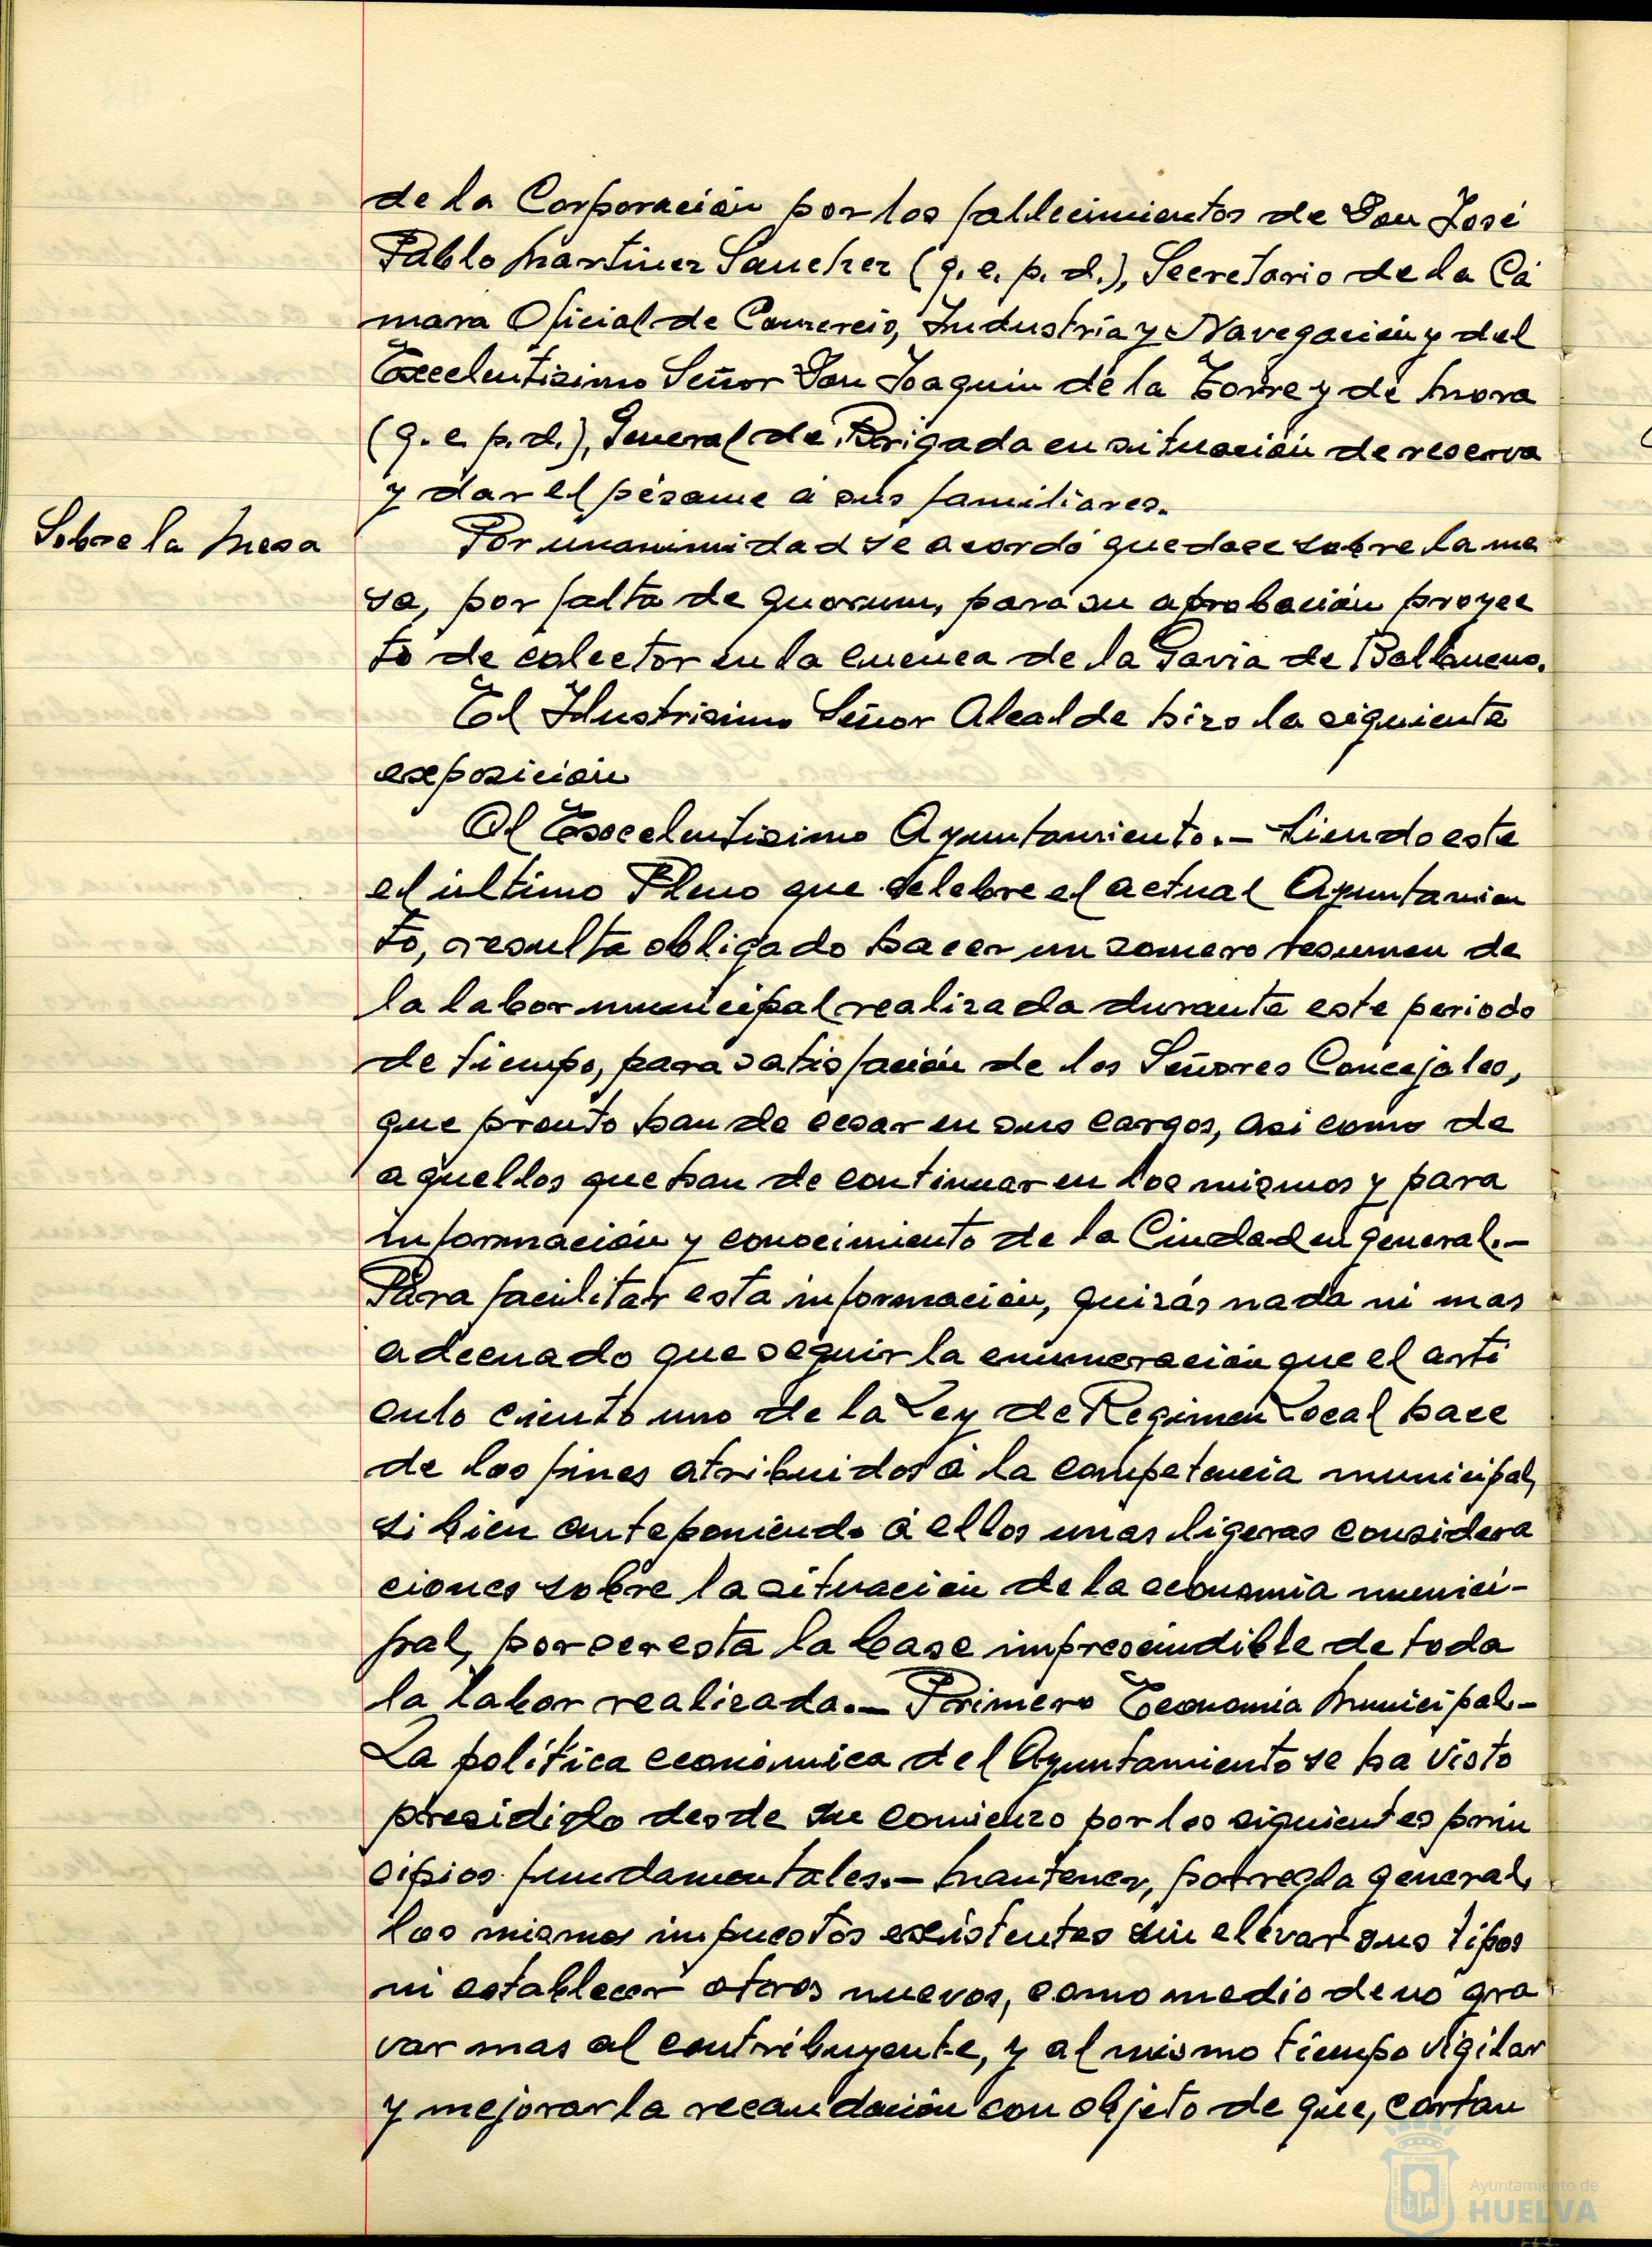 de la Corporación por los fallecimientos de Don José
Pablo Martinez Sanchez (q. e. p. d.), Secretario de la Cá
mara Oficial de Comercio, Industria y Navegación y del
Excelentisimo Señor Don Joaquin de la Torre y de Mora
(q. e. p. d.), General de Brigada en situación de reserva
y dar el pésame á sus familiares.
Sobre la Mesa
Por unanimidad se acordó quedase sobre la me
sa, por falta de quorum, para su aprobación proyec
to de colector en la cuenca de la Gavia de Balbueno.
El Ilustrisimo Señor Alcalde hizo la siguiente
exposición
Al Excelentisimo Ayuntamiento.- Siendo este
el último Pleno que celebre el actual Ayuntamien
to, resulta obligado hacer un somero resumen de
la labor municipal realizada durante este periodo
de tiempo, para satisfación de los Señores Concejales,
que pronto han de cesar en sus cargos, asi como de
aquellos que han de continuar en los mismos y para
información y conocimiento de la Ciudad en general.-
Para facilitar esta información, quizás nada ni mas
adecuado que seguir la enumeración que el arti
culo ciento uno de la Ley de Regimen Local hace
de los fines atribuidos á la competencia municipal,
si bien anteponiendo á ellos unas ligeras considera
ciones sobre la situación de la economia munici-
pal, por ser esta la base impresindible de toda
la labor realizada.- Primero Economia Municipal.-
La política económica del Ayuntamiento se ha visto
presidido desde su comienzo por los siguientes prin
cipios fundamentales.- Mantener, por regla general,
los mismos impuestos existentes sin elevar sus tipos
ni establecer otros nuevos, como medio de no gra
var mas al contribuyente, y al mismo tiempo vigilar
y mejorar la recaudación con objeto de que, cortan
Ayuntamiento de
HUELVA